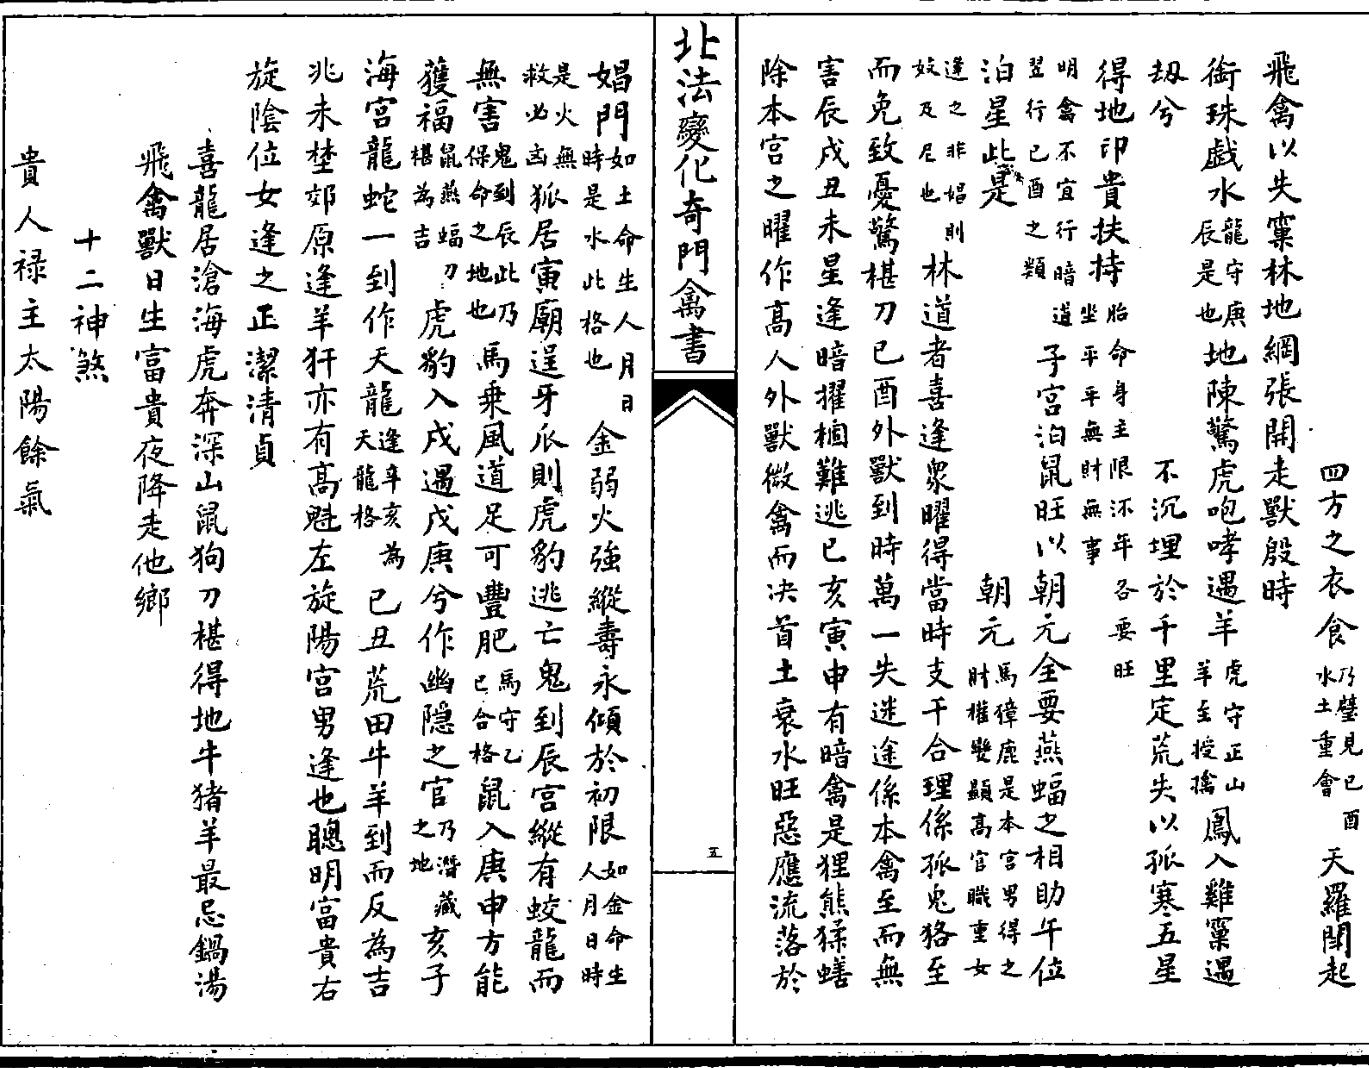 四方之衣食乃璧見已酉水土重會天羅閙起
飛禽以失窠林地網張開走獸殷時
銜珠戱水龍守庚辰是也地陳驚虎咆哮遇羊虎守正山羊至授擒鳳入雞窠遇
刼兮不沉埋於千里定荒失以孤寒五星
得地印貴扶持胎命身主限汱年各要旺坐平平無財無事
明禽不宜行暗道翌行已酉之類子宮泊鼠旺以朝元全要燕蝠之相助午位
泊星此是朝元馬獐鹿是本宮男得之財權雙顯高官職重女
逢之非娼則妓及尼也林道者喜逢衆曜得當時支干合理係孤鬼狢至
而免致憂驚椹刀已酉外獸到時萬一失迷途係本禽至而無
害辰戌丑未星逢暗擢梱難逃已亥寅申有暗禽是狸熊猱蟮
除本宮之曜作高人外獸微禽而决首土衰水旺惡應流落於
北法變化奇門禽書
五
娼門如土命生人月日時是水此格也金弱火強縱壽永傾於初限如金命生人月日時
是火無救必凶狐居寅廟逞牙爪則虎豹逃亡鬼到辰宮縱有蛟龍而
無害鬼到辰此乃保命之地也馬乗風道足可豐肥馬守乙已合格鼠入庚申方能
獲福鼠燕蝠刀椹為吉虎豹入戌遇戊庚兮作幽隱之官乃潛藏之地亥子
海宮龍蛇一到作天龍逢辛亥為天龍格已丑荒田牛羊到而反為吉
兆未埜郊原逢羊犴亦有高魁左旋陽宮男逢也聰明富貴右
旋陰位女逢之正潔清貞
喜龍居滄海虎奔深山鼠狗刀椹得地牛猪羊最忌鍋湯
飛禽獸日生富貴夜降走他鄉
十二神煞
貴人祿主太陽餘氣